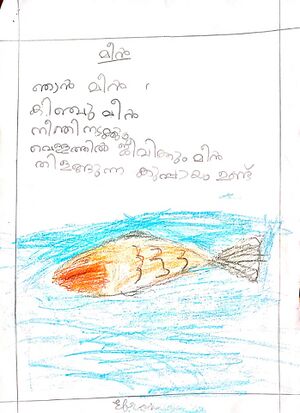 മീൻ
ഞാൻ മീൻ
കിഞ്ചു മീൻ
നീന്തി നടക്കുന്നു
വെള്ളത്തിൽ ജീവിക്കും മീൻ
തിളങ്ങുന്ന കുപ്പായം ഉണ്ട്